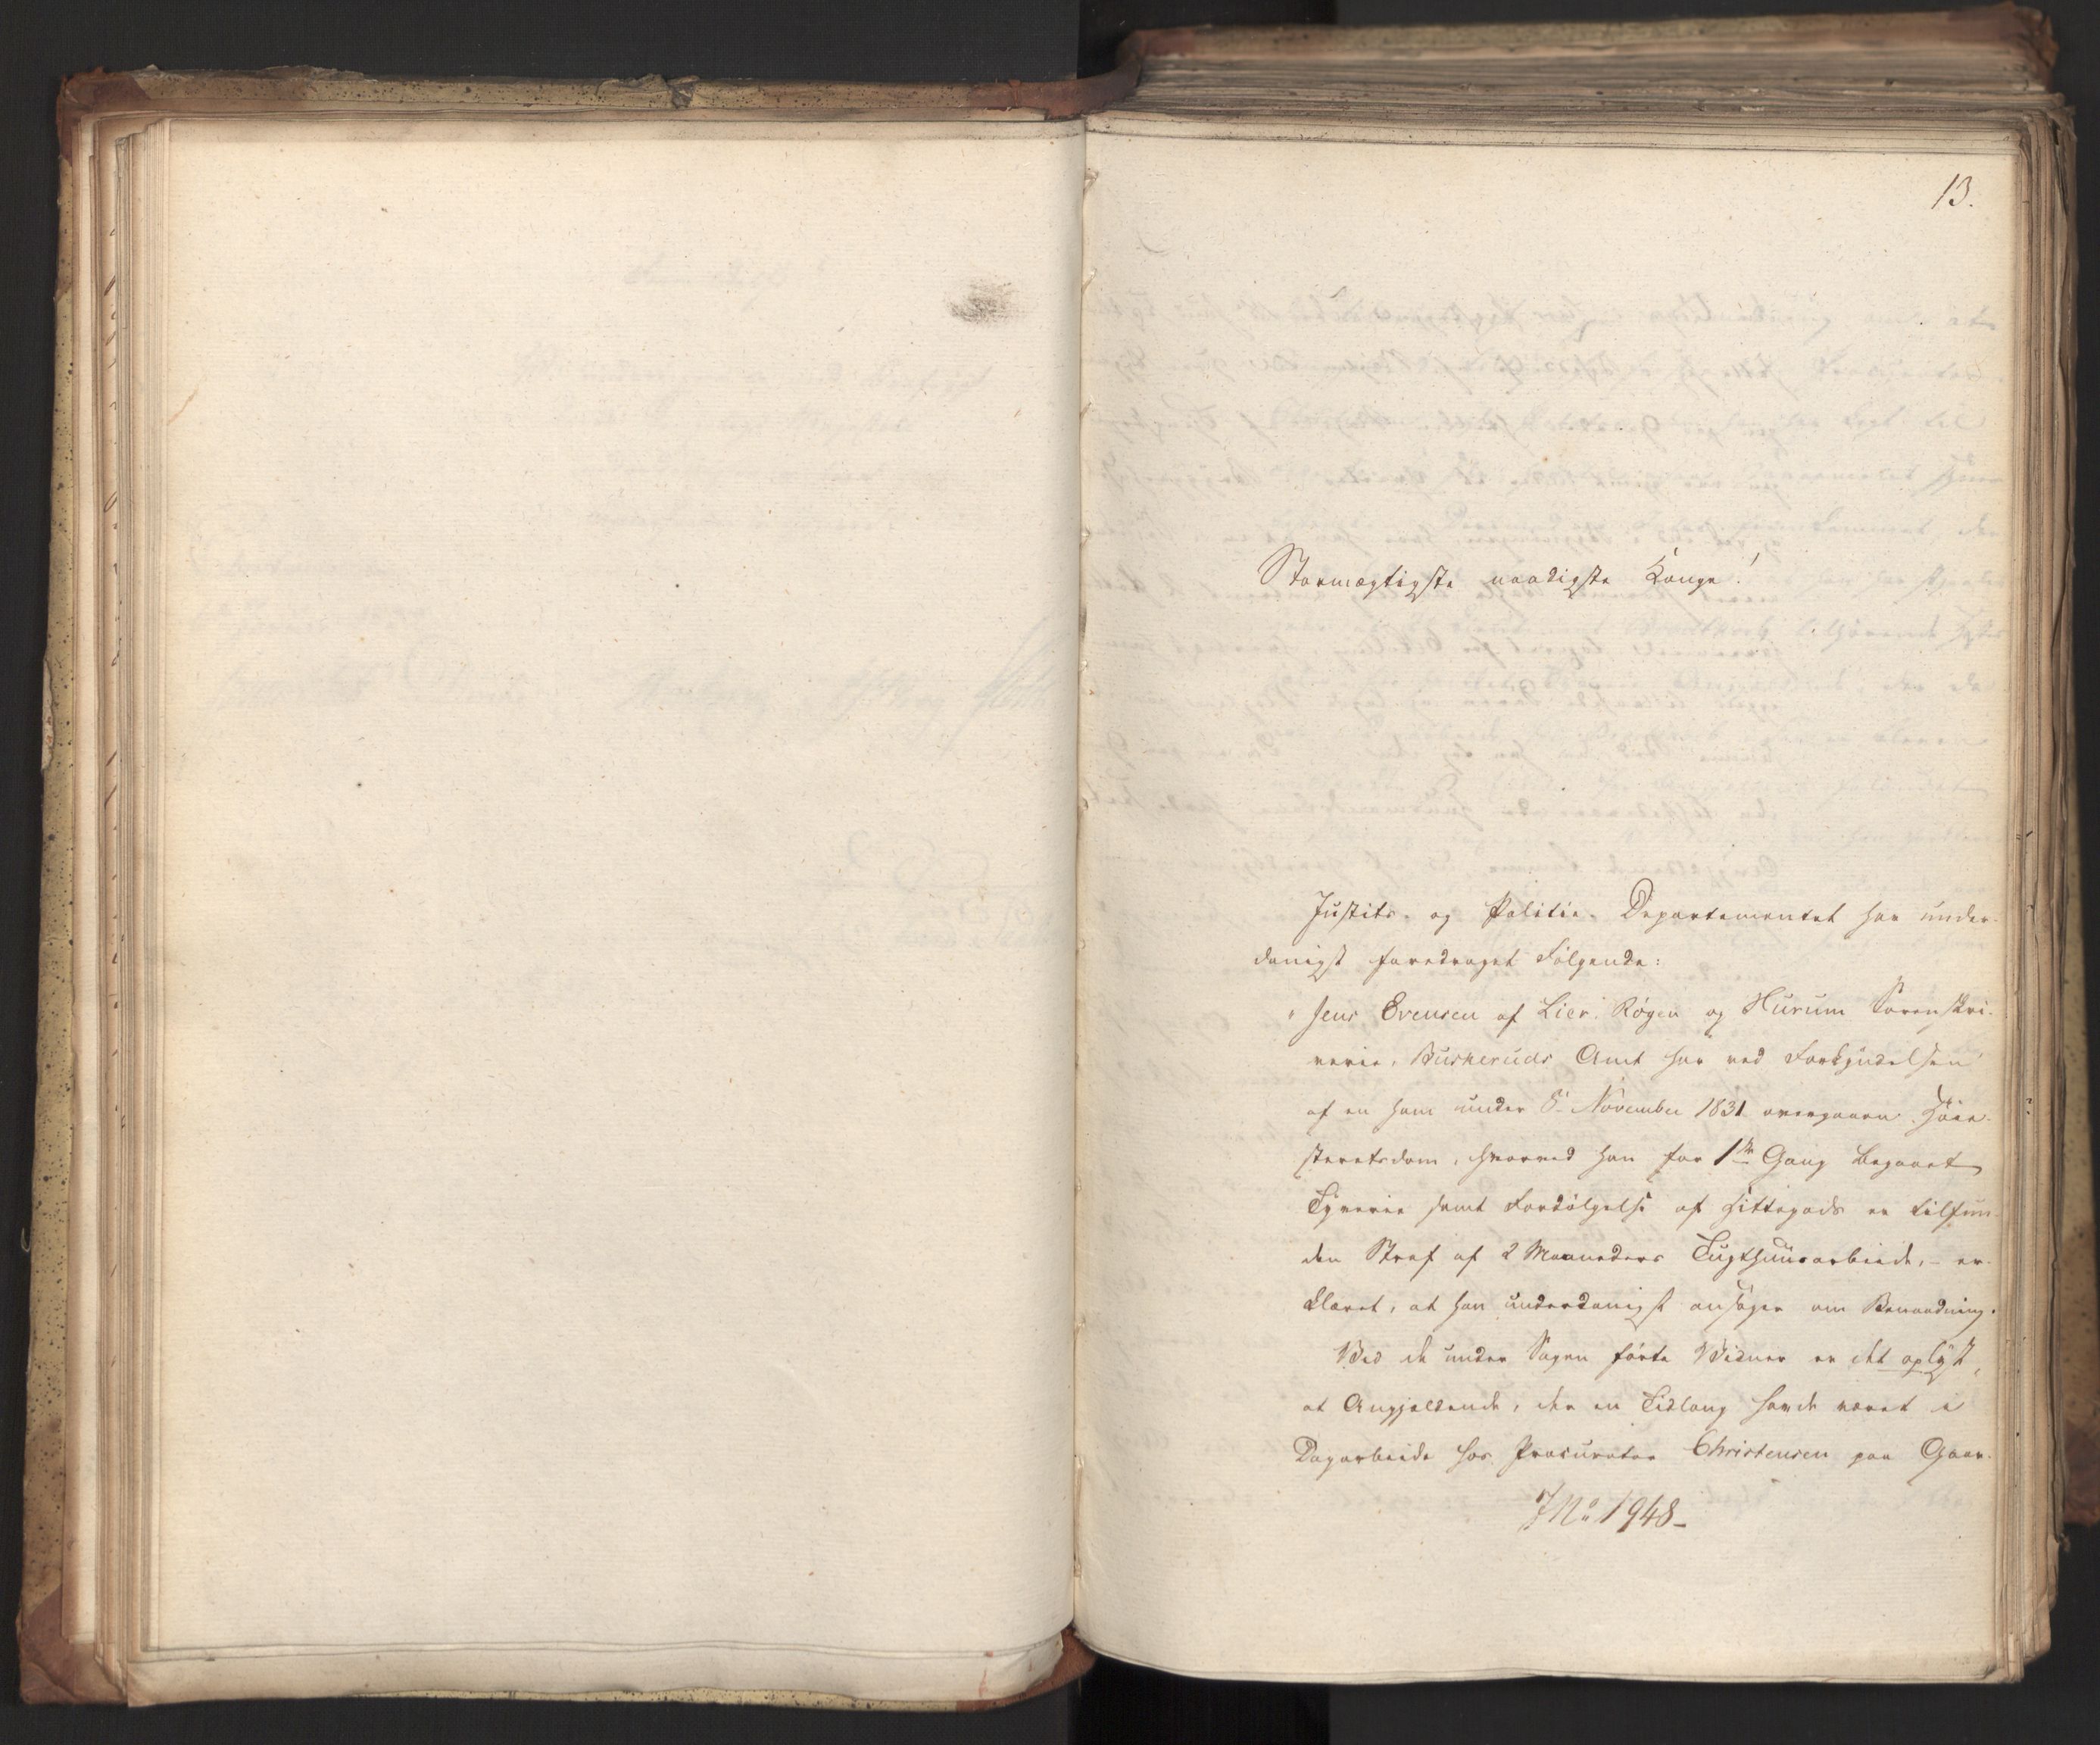 13.
Stormægtigste naadigste Konge!
Justits- og Politie-Departementet har under-
danigst foredraget Følgende:
"Jens Evensen af Lier, Røgen og Hurum Sorenskri-
verie, Buskeruds Amt har ved Forkyndelsen
af en ham under 5- November 1831 overgaaen Høie-
steretsdom, hvorved han for 1ste Gang begaaet
Tyverie samt Fordølgelse af Hittegods er tilfun-
den Straf af 2 Maaneders Tugthuusarbeide, - er-
klæret, at han underdanigst ansøger om Benaadning.
Ved de under Sagen førte Vidner er det oplyst,
at Angjeldende, der en Tidlang havde været i
Dagarbeide hos Procurator Christensen paa Gaar-
JNo 1948-